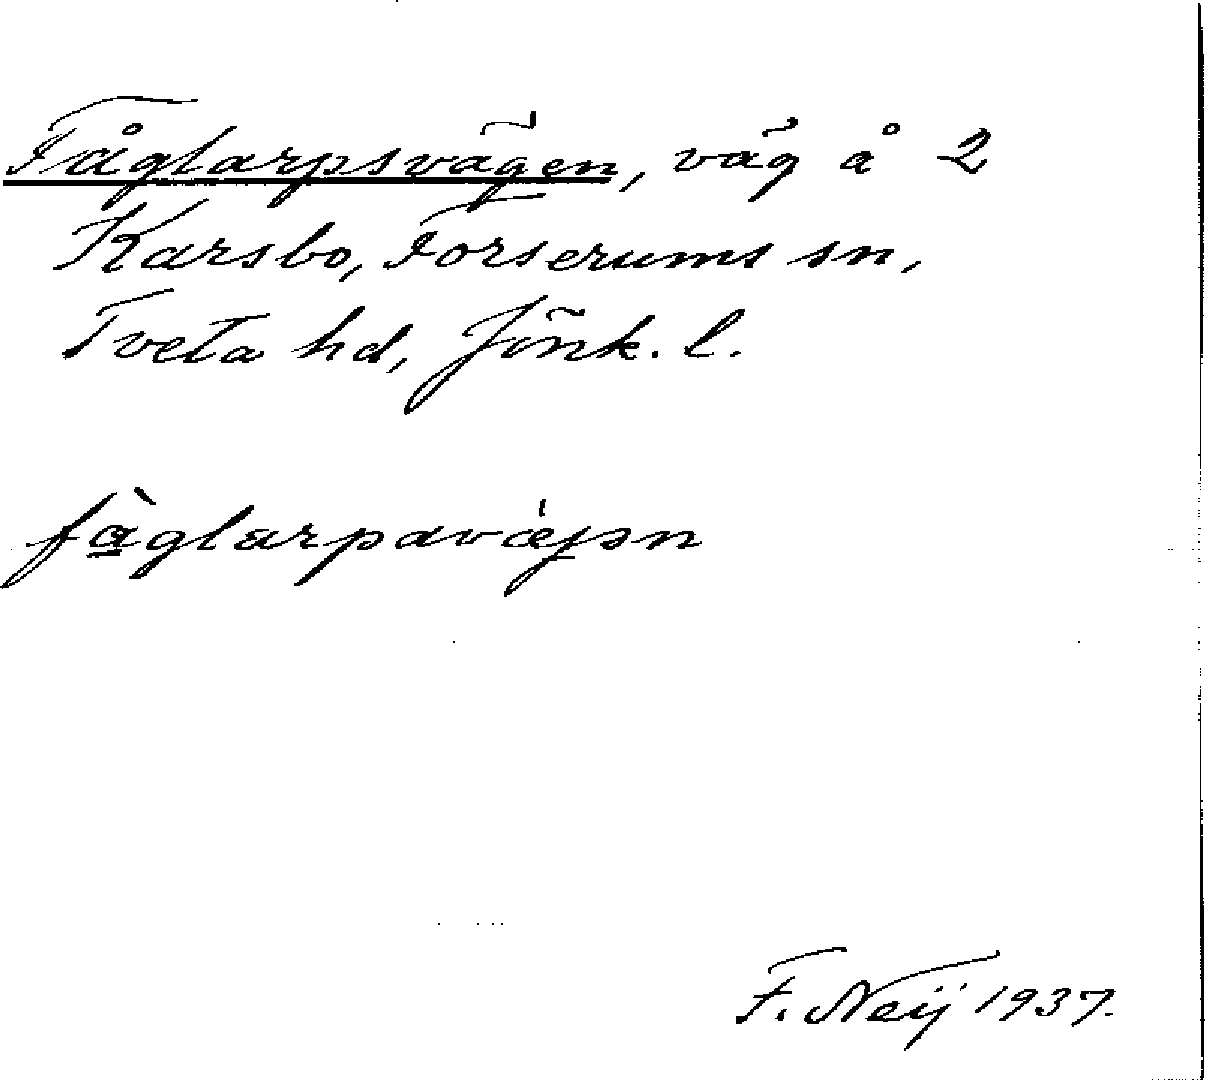 Fåglarpsvägen, väg å 2
Karsbo, Forserums sn,
Tveta hd, Jönk. l.
fàglarpavæjən
F. Neij 1937.